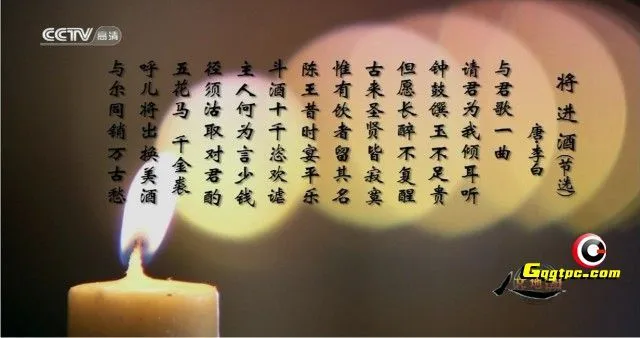 CCTV 高清
将进酒(节选)
唐·李白
与君歌一曲
请君为我倾耳听
钟鼓馔玉不足贵
但愿长醉不复醒
古来圣贤皆寂寞
惟有饮者留其名
陈王昔时宴平乐
斗酒十千恣欢谑
主人何为言少钱
径须沽取对君酌
五花马 千金裘
呼儿将出换美酒
与尔同销万古愁
Gqgtpc.com